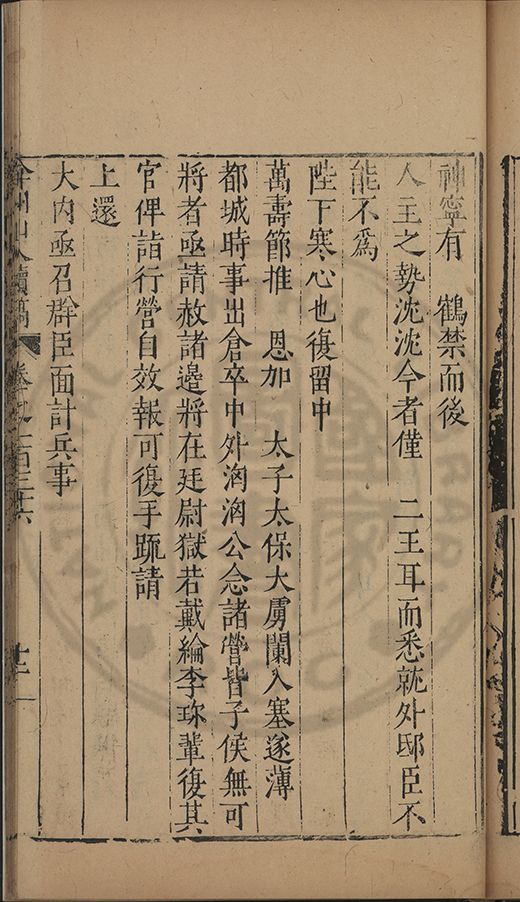 神寧有　鶴禁而後
人主之勢沈沈今者僅　二王耳而悉就外邸臣不
能不爲
陛下寒心也復留中
萬壽節推　恩加　太子太保大虜闌入塞遂薄
都城時事出倉卒中外洶洶公念諸營皆子侯無可
將者亟請赦諸邊將在廷尉獄若戴綸李珍輩復其
官俾詣行營自效報可復手疏請
上還
大内亟召群臣面計兵事
弇州山人續稿　卷之一百三十六　十二